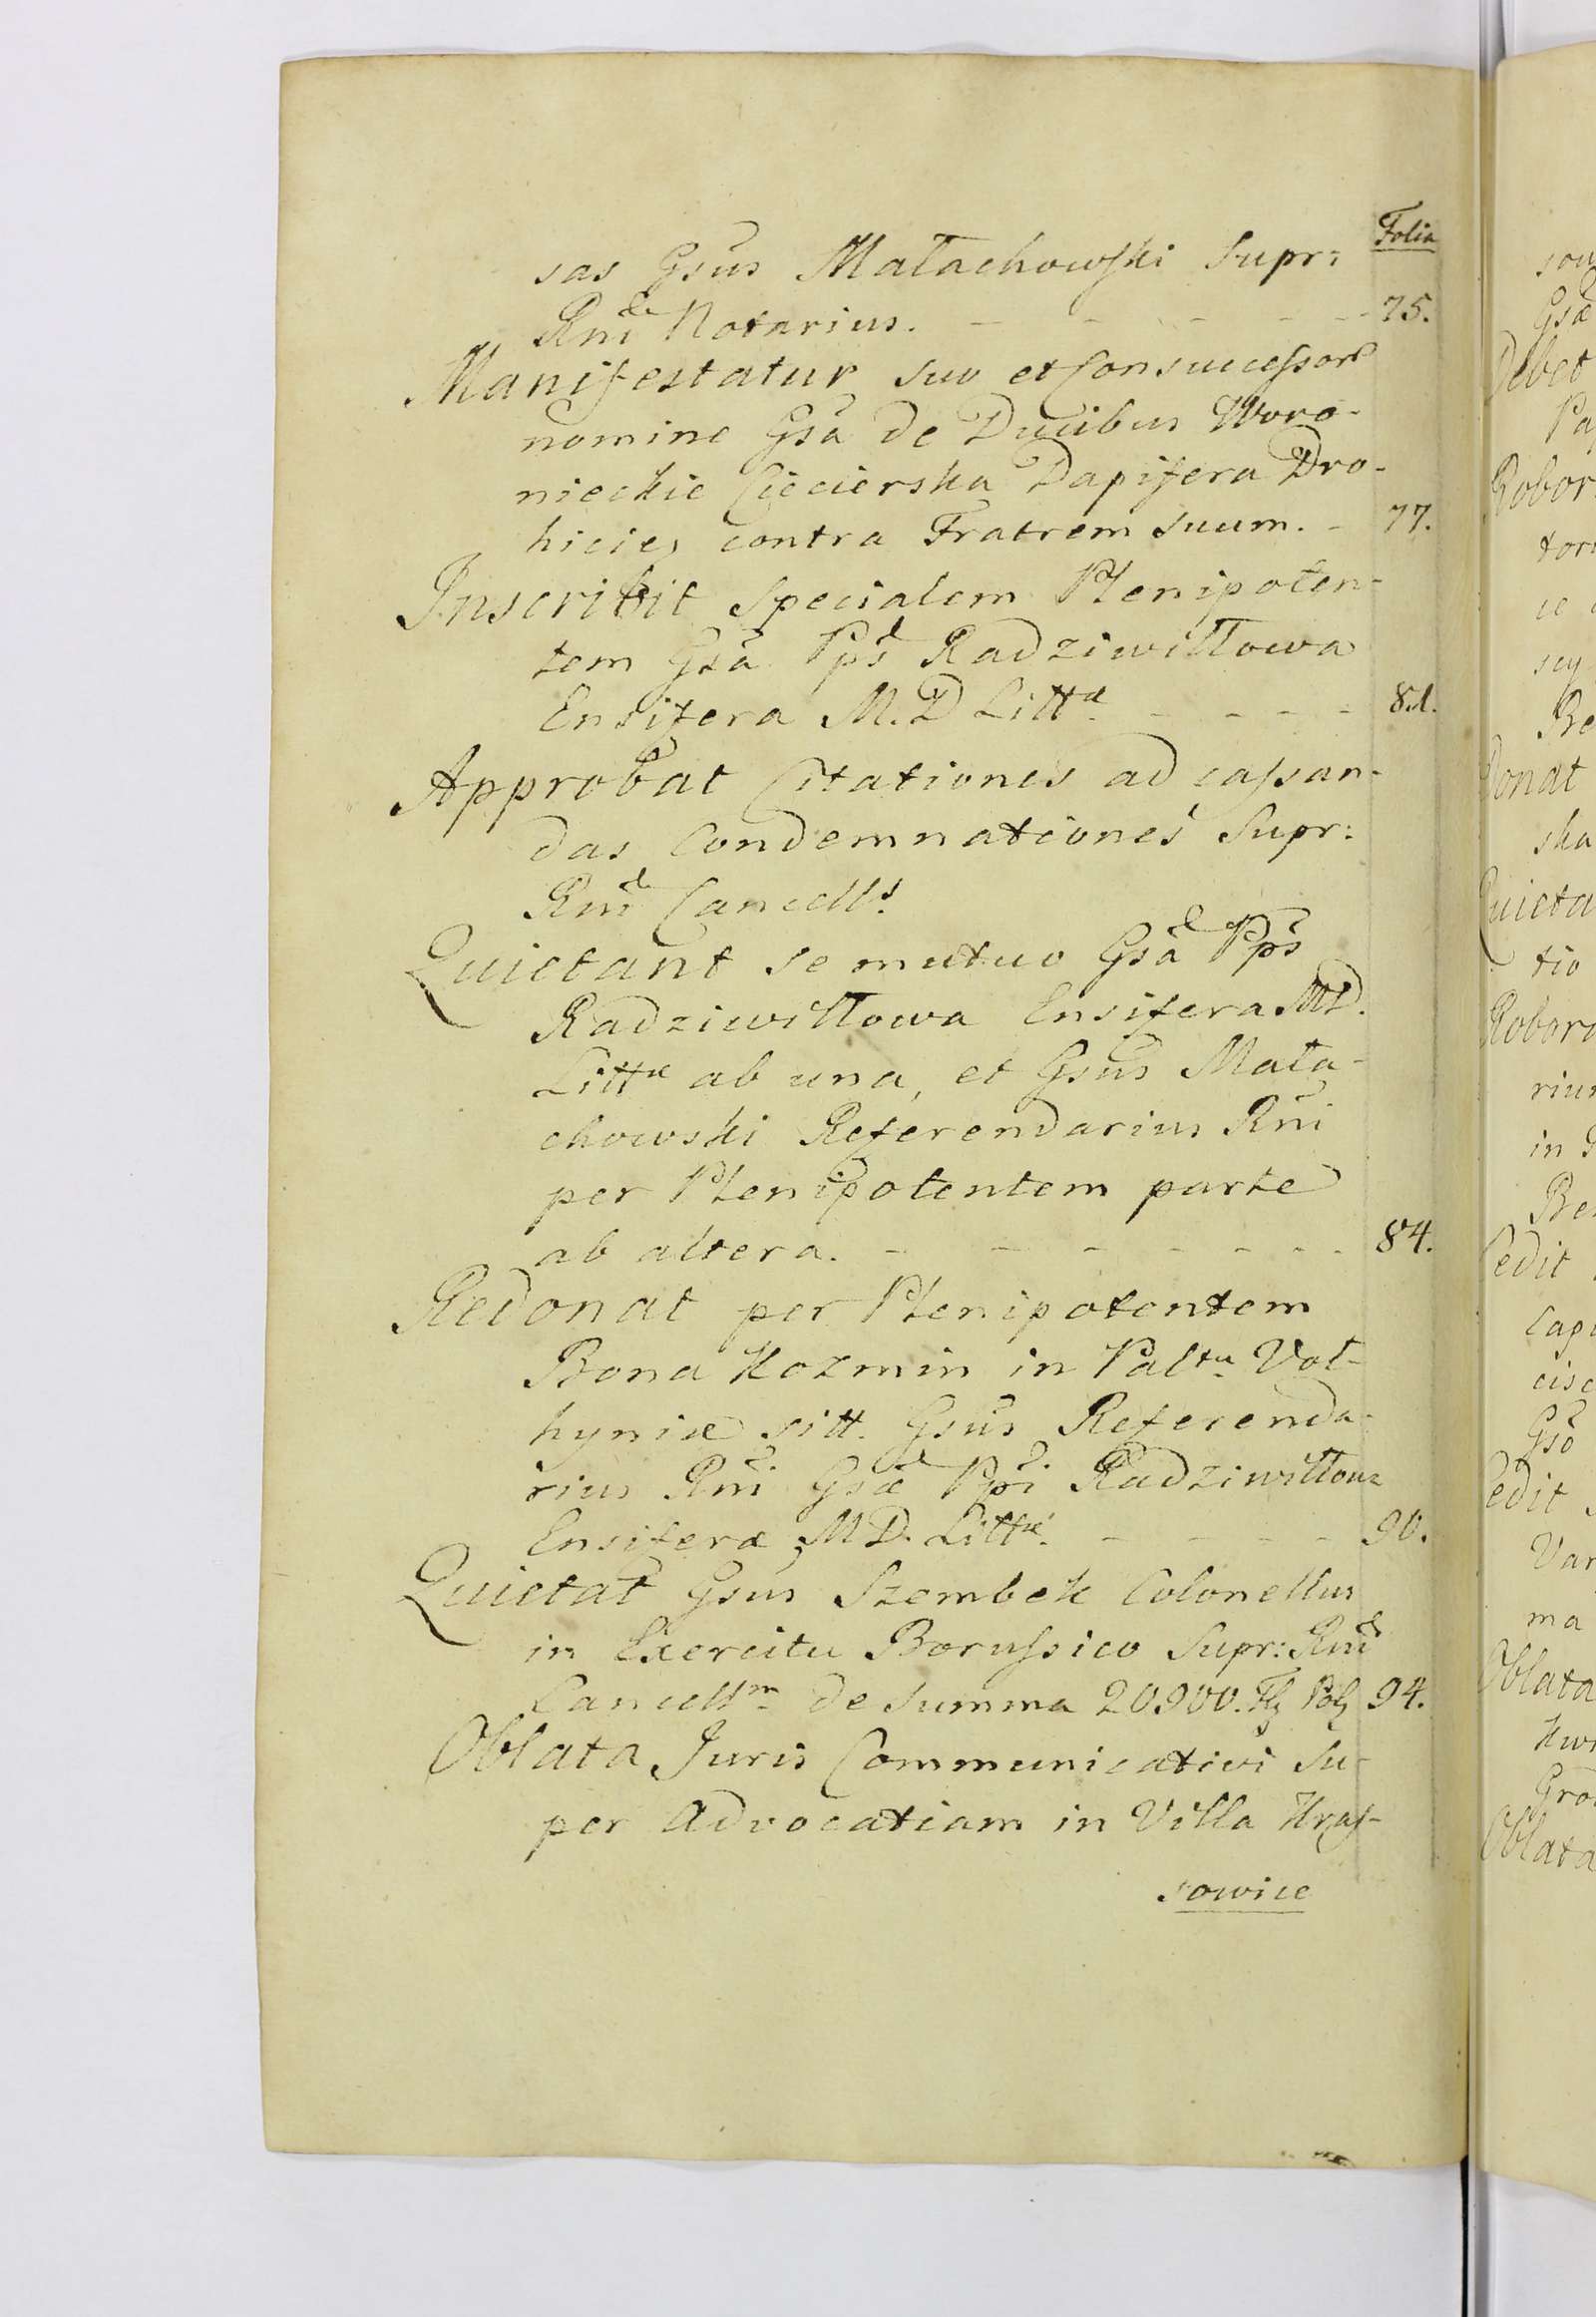 Folia
sas Gsus Małachowski Supr:
Rni Notarius. - - - - - 75.
Manifestatur suo et Consuccessor
nomine Gsa de Ducibus Woro-
nieckie Ciecierska Dapifera Dro-
hicien contra Fratrem suum. - 77.
Inscribit Specialem Plenipoten-
tem Gsa Pps Radziwiłłowa
Ensifera M. D Littæ - - - - 81.
Approbat Citationes ad cassan-
das Condemnationes Supr:
Rni Cancells
Quietant se mutuo Gsa Pps
Radziwiłłowa Ensifera MD.
Littæ ab una, et Gsus Mała-
chowski Referendarius Rni
per Plenipotentem parte
ab altera. - - - - - - - 84.
Redonat per Plenipotentem
Bona Kozmin in Paltu Vol-
hyniæ sitt. Gsus Referenda-
rius Rni Gsæ Ppi Radziwiłłowa
Ensiferæ MD. Littæ. - - - - 90.
Quietat Gsus Szembek Colonellus
in Exercitu Borussico Supr: Rni
Cancellm de Summa 20900. Fl Pol 94.
Oblata Juris Communicativi Su-
per Advocatiam in Villa Kras-
sowice